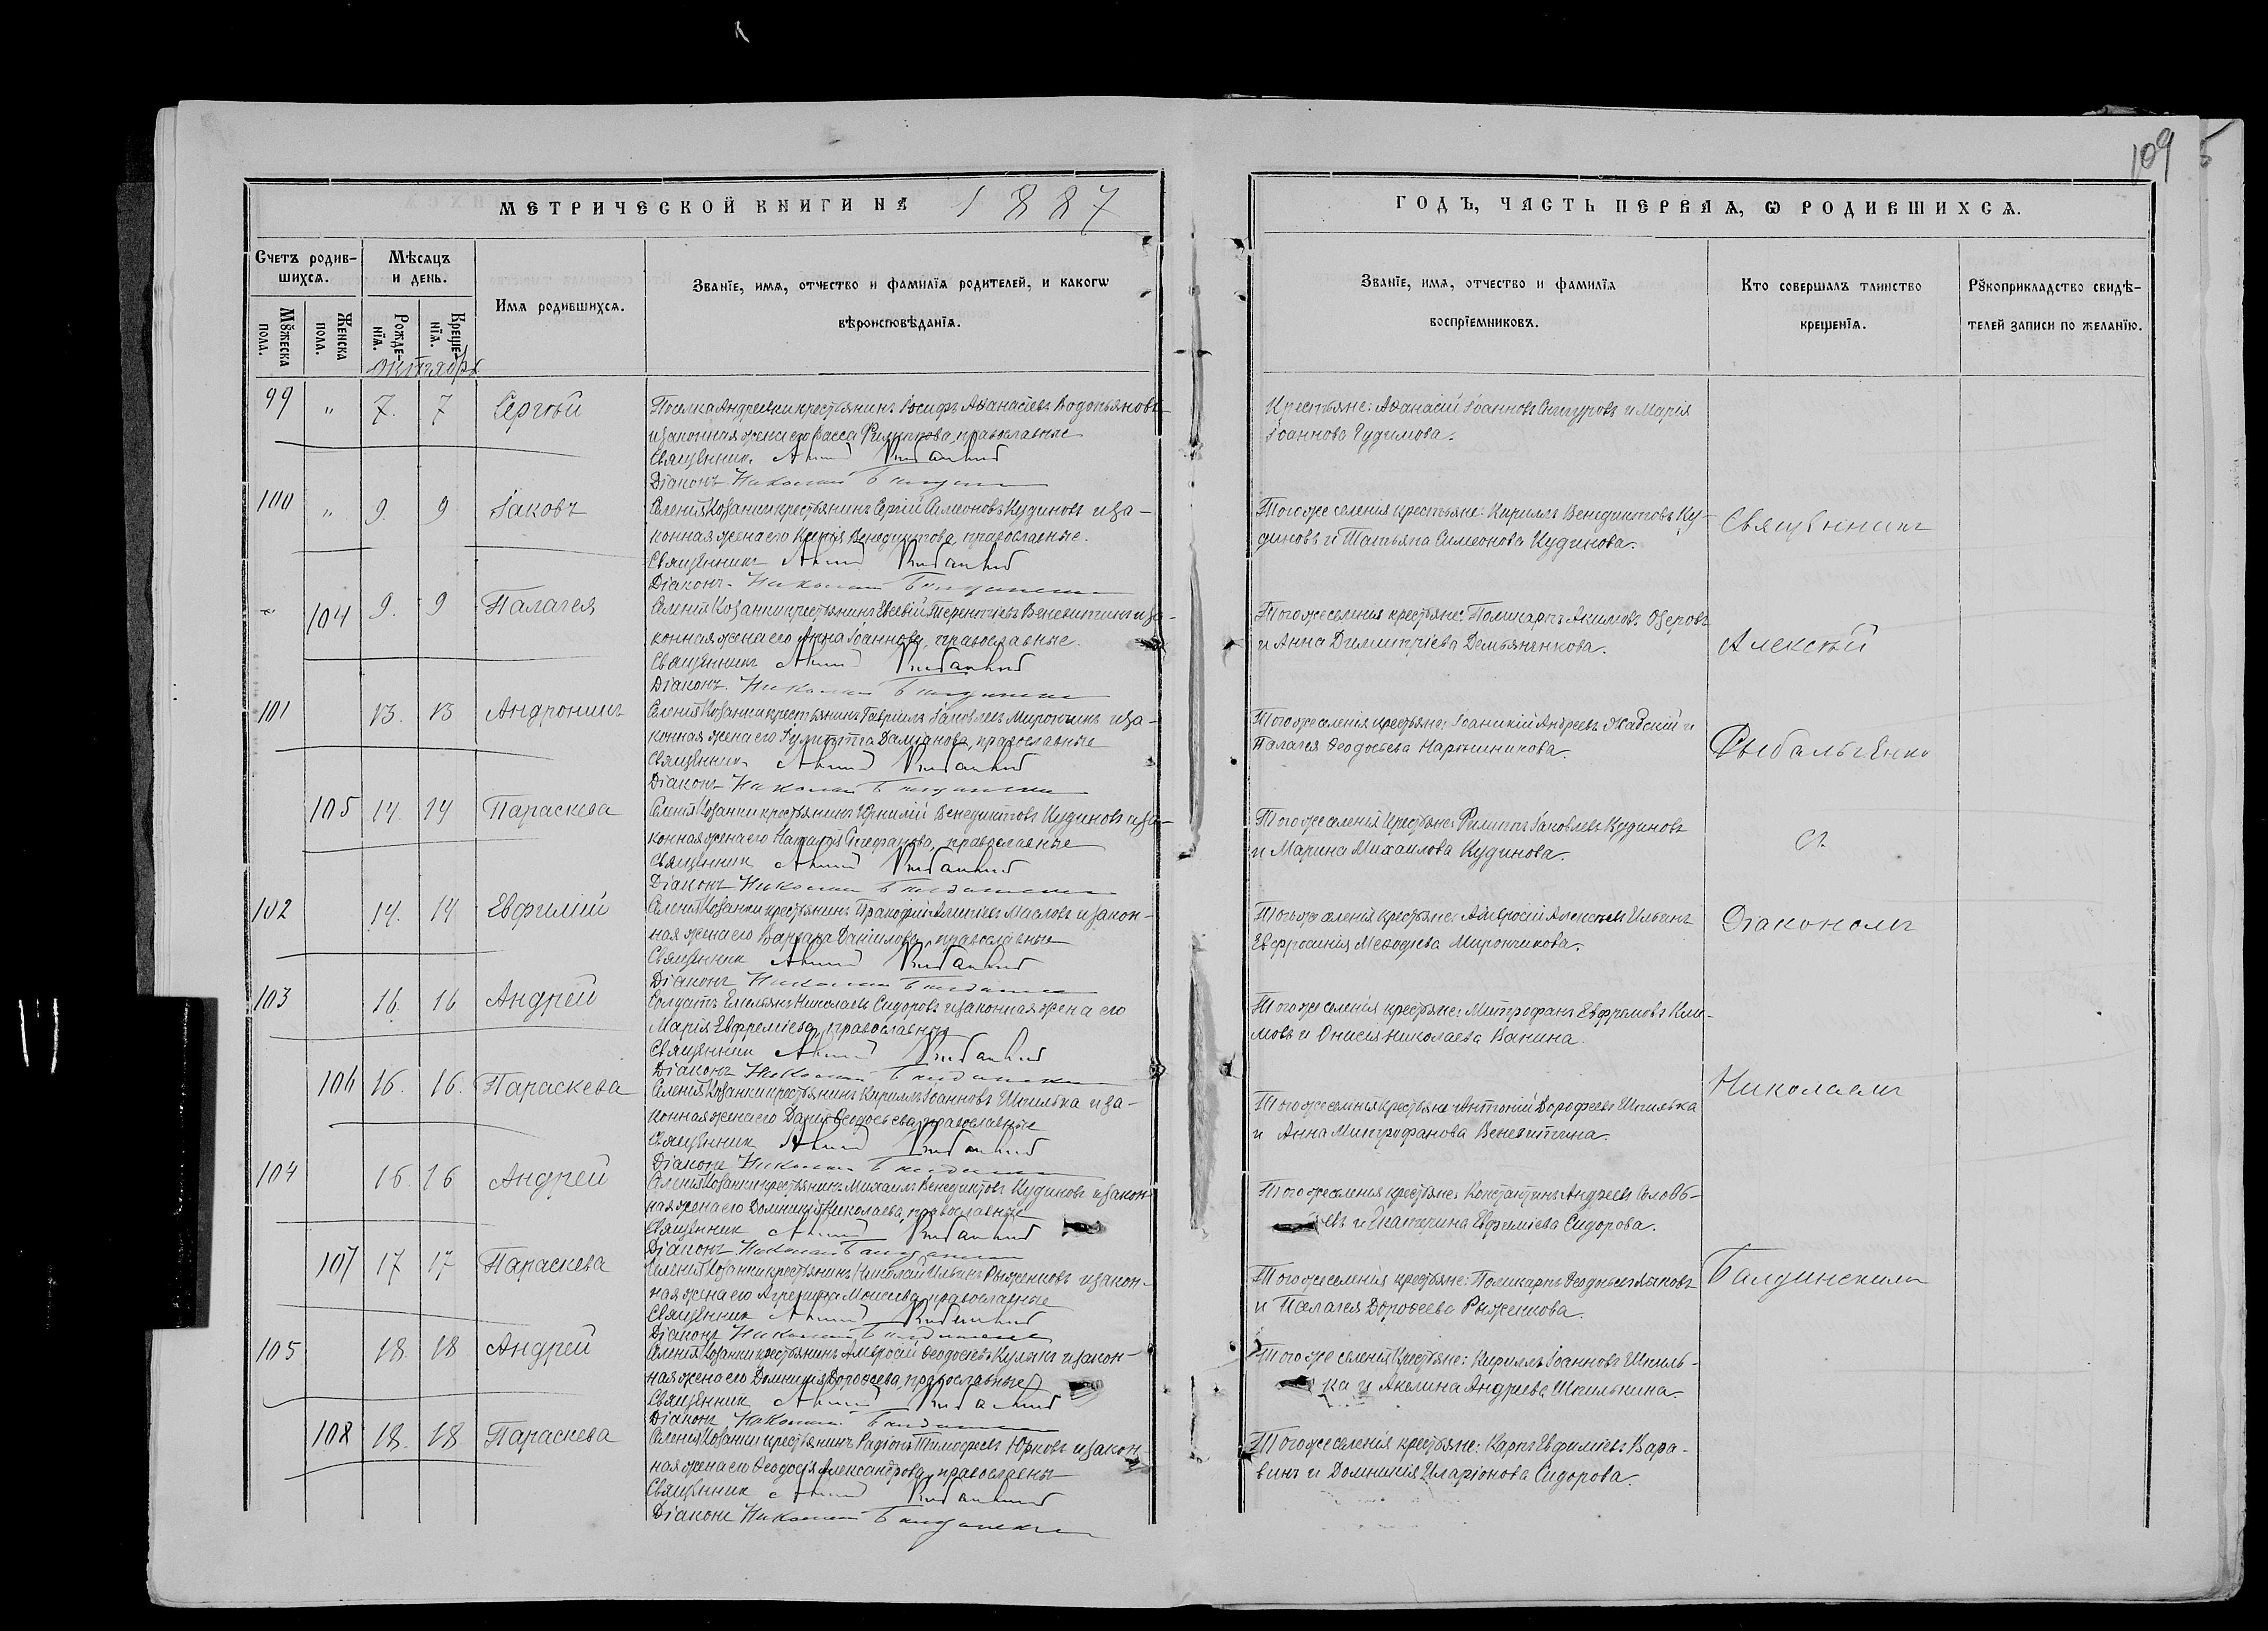 109
МЕТРИЧЕСКОЙ КНИГИ НА 1887
ГОДЪ, ЧАСТЬ ПЕРВАЯ, Ѡ РОДИВШИХСЯ.
Счетъ родив-
шихся.
Мѹжеска пола.
Женска пола.
Мѣсяцъ и день.
Рожде-
нія.
Креще-
нія.
Имя родившихся.
Званіе, имя, отчество и фамилія родителей, и какогѡ
вѣроисповѣданія.
Званіе, имя, отчество и фамилія
воспріемниковъ.
Кто совершалъ таинство
крещенія.
Рѹкоприкладство свидѣ-
телей записи по желанію.
Октябрь
99 " 7. 7 Сергѣй
Поселка Андреевки крестьянинъ Іосифъ Аѳанасіевъ Водопьяновъ
и законная жена его Васса Филипова, православные
Священникъ
Діаконъ Николай
Крестьяне: Аѳанасій Іоанновъ и Марія
Іоаннова Гудимова.
100 " 9. 9 Іаковъ
Селенія Козанки крестьянинъ Сергій Симеоновъ Кудиновъ и за-
конная жена его Ксенія Венедиктова, православные.
Священникъ
Діаконъ Николай
Того же селенія крестьяне: Кириллъ Венедиктовъ Ку-
диновъ и Татьяна Симеонова Кудинова.
" 104 9. 9 Палагея
Селенія Козанки крестьянинъ Евсевій Терентіевъ Веневитинъ и за-
конная жена его Анна Іоаннова, православные.
Священникъ
Діаконъ Николай
Того же селенія крестьяне: Поликарпъ Акимовъ Озеровъ
и Анна Димитріева Демьяненкова.
101 13. 13 Андроникъ
Селенія Козанки крестьянинъ Гавріилъ Іаковлевъ Мирончикъ и за-
конная жена его Іулитта Даміанова, православные
Священникъ
Діаконъ Николай
Того же селенія крестьяне: Іоаникій Андреевъ Жабскій и
Палагея Ѳеодосьева
105 14. 14 Параскева
Селенія Козанки крестьянинъ Венедиктовъ Кудиновъ и за-
конная жена его Наталія Стефанова, православные
Священникъ
Діаконъ Николай
Того же селенія крестьяне: Филипъ Іаковлевъ Кудиновъ
и Марина Михаилова Кудинова.
102 14. 14 Евфимій
Селенія Козанки крестьянинъ Прокофій Масловъ и закон-
ная жена его Варвара Даніилова, православные
Священникъ
Діаконъ Николай
Того же селенія крестьяне: Амвросій Алексѣевъ Ильинъ
Евфросинія Меѳодіева Мирончикова.
103 16. 16 Андрей
Солдатъ Емельянъ Николаевъ Сидоровъ и законная жена его
Марія Евфреміева, православные
Священникъ
Діаконъ Николай
Того же селенія крестьяне: Митрофанъ Евфремовъ Кли-
мовъ и Онисія Николаева Ванина.
106 16. 16. Параскева
Селенія Козанки крестьянинъ Кириллъ Іоанновъ Шпилька и за-
конная жена его Дарія Ѳеодосьева, православные
Священникъ
Діаконъ Николай
Того же селенія крестьяне Антоній Дорофеевъ Шпилька
и Анна Митрофанова Веневитина.
104 16. 16 Андрей
Селенія Козанки крестьянинъ Михаилъ Венедиктовъ Кудиновъ и закон-
ная жена его Домникія Николаева, православные
Священникъ
Діаконъ Николай
Того же селенія крестьяне: Константинъ Андреевъ Соловь-
евъ и Екатерина Евфиміева Сидорова.
107 17 17 Параскева
Селенія Козанки крестьянинъ Николай Ильинъ Рыженковъ и закон-
ная жена его Агрепина Моисеева, православные
Священникъ
Діаконъ Николай
Того же селенія крестьяне: Поликарпъ Ѳеодосьевъ
и Палагея Дороѳеева Рыженкова.
105 18. 18 Андрей
Селенія Козанки крестьянинъ Амвросій Ѳеодосіевъ и закон-
ная жена его Домникія Дороѳеева, православные
Священникъ
Діаконъ Николай
Того же селенія Крестьяне: Кириллъ Іоанновъ Шпиль-
ка и Акелина Андреева Шпилькина.
108 18. 18 Параскева
Селенія Козанки крестьянинъ Радіонъ Тимофеевъ Юрковъ и закон-
ная жена его Ѳеодосія Александрова, православны
Священникъ
Діаконъ Николай
Того же селенія крестьяне: Карпъ Евфиміевъ Вара-
винъ и Домникія Иларіонова Сидорова.
Священникъ
Алексѣй
Рыбальченко
съ
Діакономъ
Николаемъ
Балдинскимъ